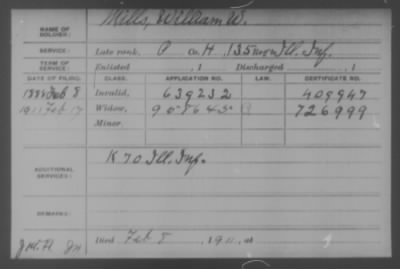 NAME OF SOLDIER: Mills, William W.
SERVICE: Late rank, P Co. H, 135 Reg't Ill. Inf.
TERM OF SERVICE: Enlisted , 1 Discharged , 1
DATE OF FILING. CLASS. APPLICATION NO. LAW. CERTIFICATE NO.
1888 Feb 8 Invalid, 639232 409947
1911 Feb 17 Widow, 958643 726999
Minor,
ADDITIONAL SERVICES: K 70 Ill. Inf.
REMARKS:
Died Feb 8, 1911, at